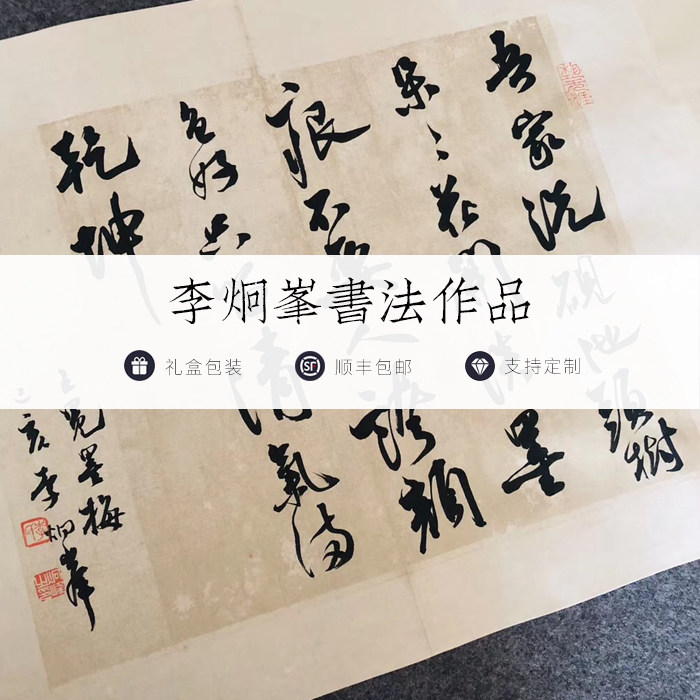 李炯峯書法作品
礼盒包装 顺丰包邮 支持定制
吾家洗硯池頭樹
朵々花開淡墨
痕不要人誇顏
色好只留清氣滿
乾坤
王冕墨梅
己亥李炯峯